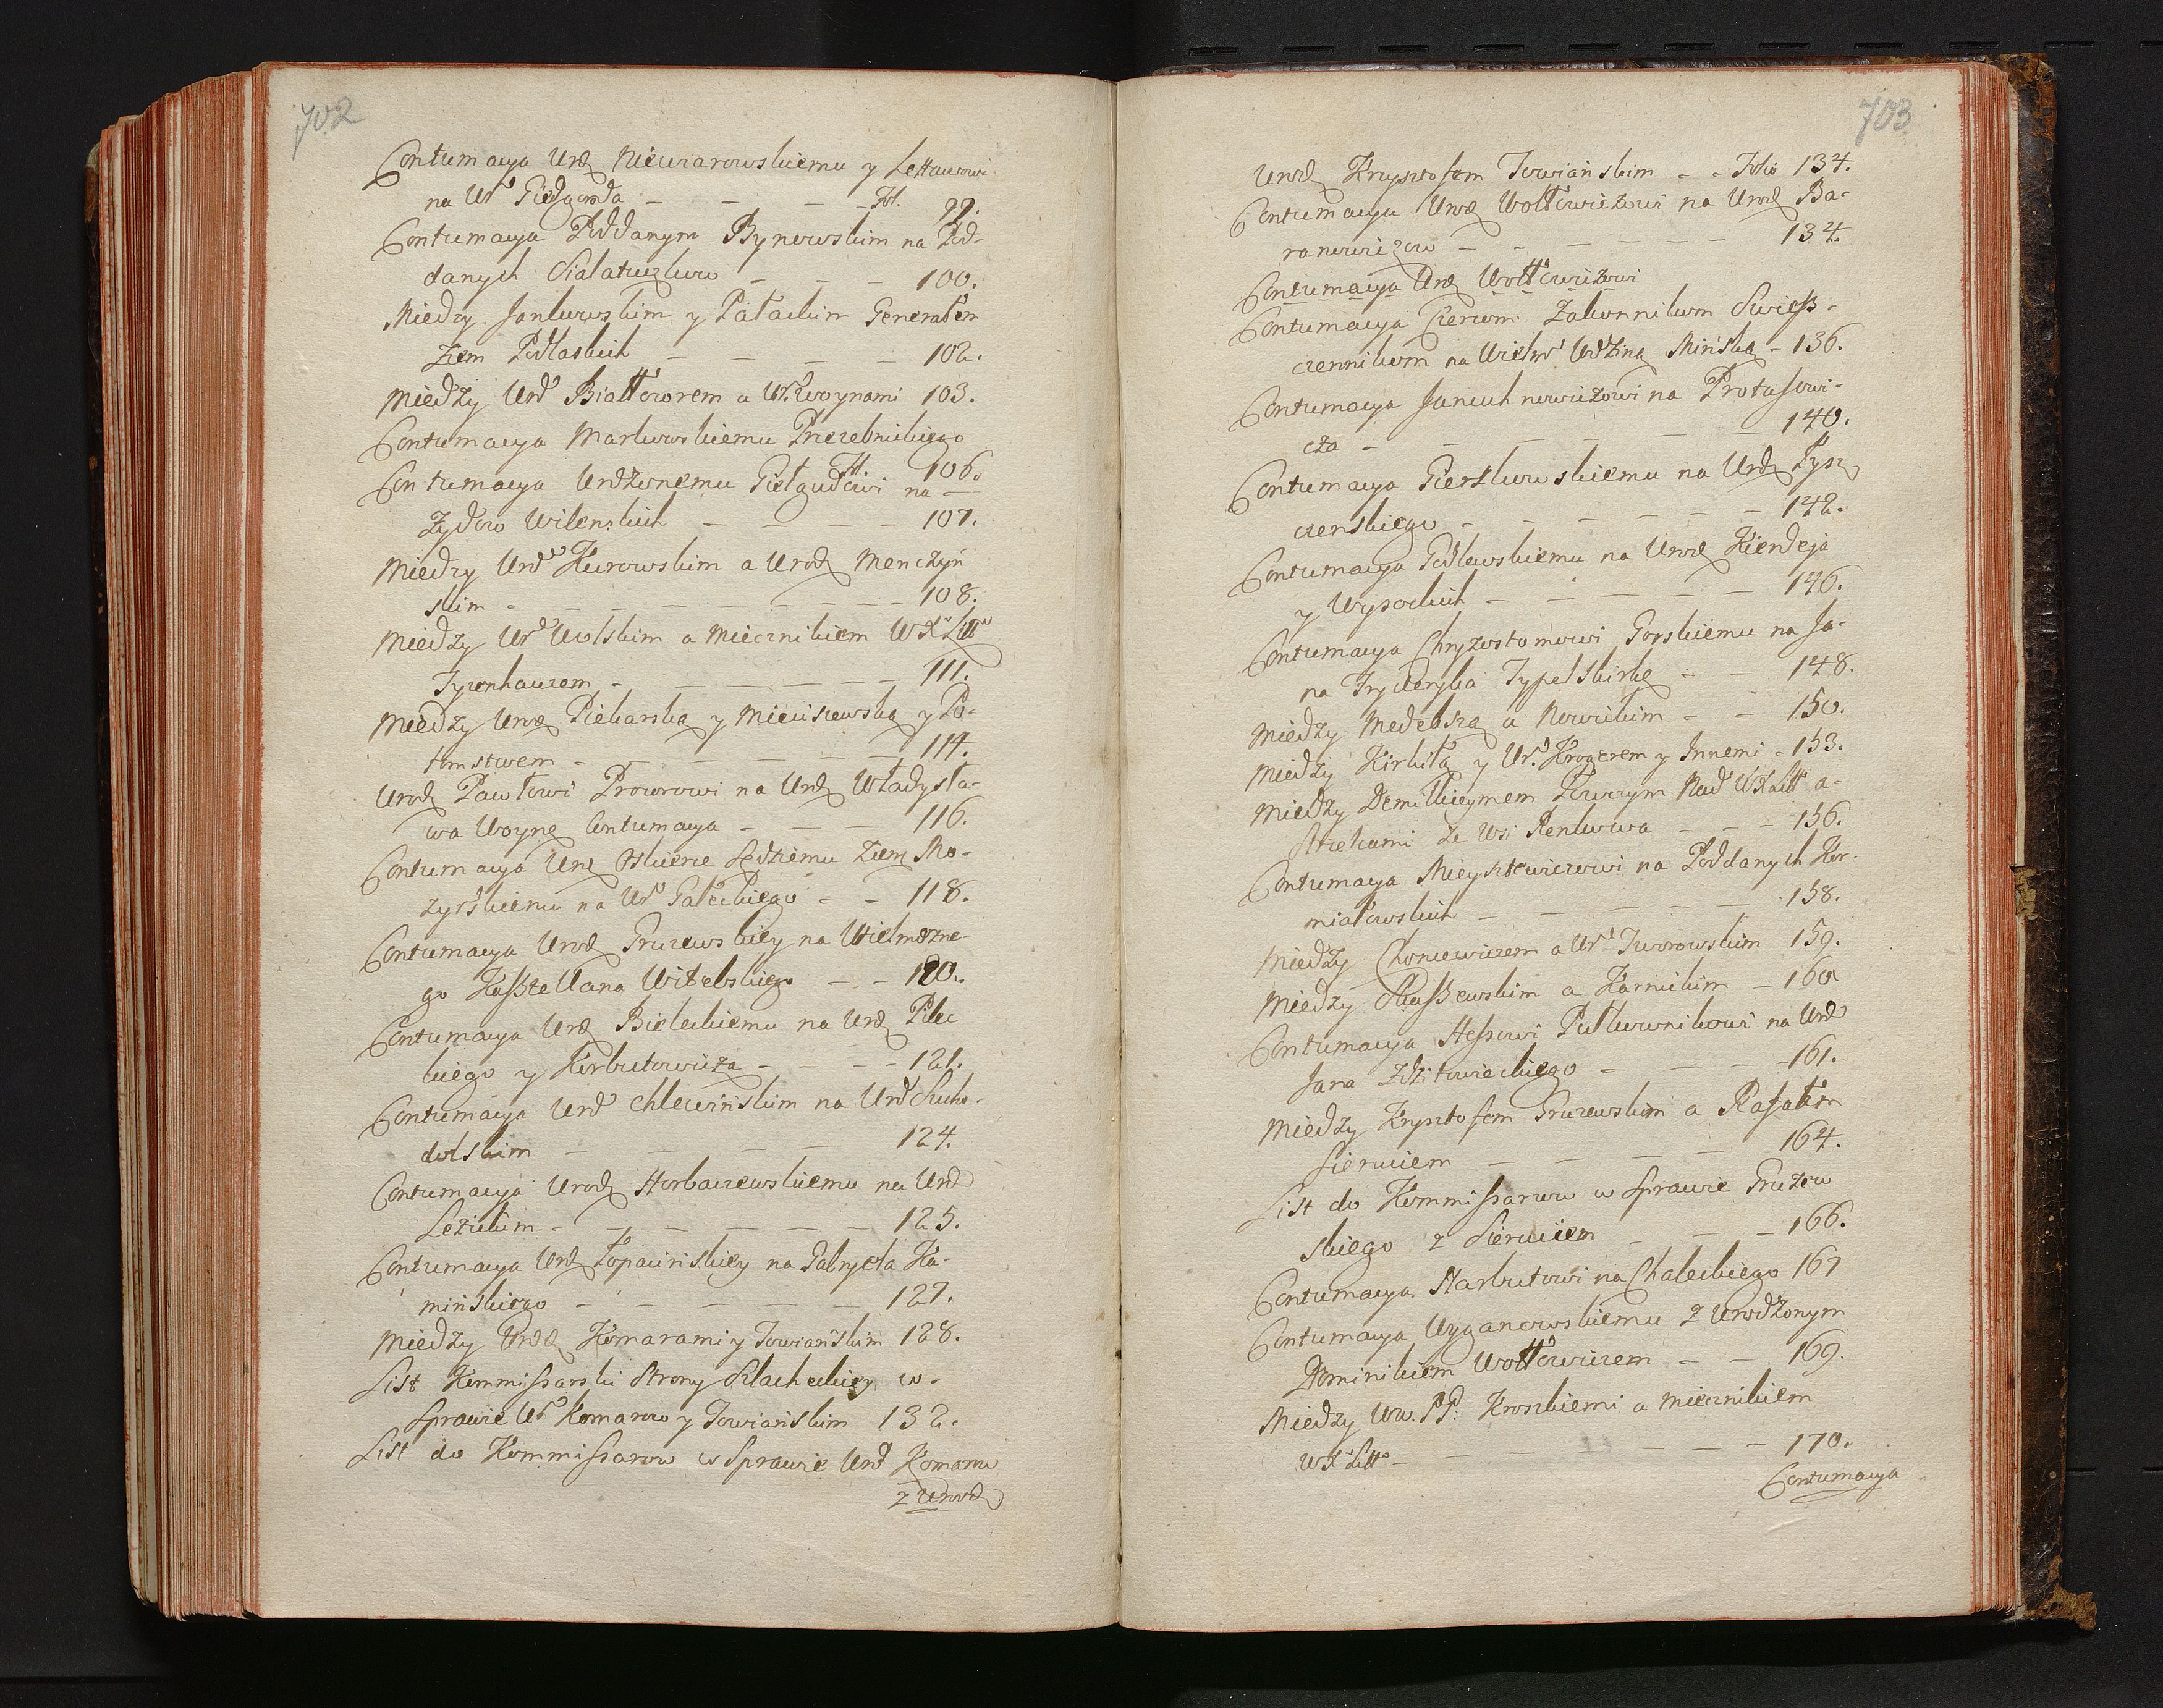 702
Contumacya Urd Niewiarowskiemu y
na Ur Giedgowda — — — — Fol. 99.
Contumacya Poddanym Rynowskim na Pod-
danych — — — 100.
Miedzy Jankowskim y Pałackim Generałem
Ziem Podlaskich — — — — 102.
Miedzy Urd Białłozorem a Ur. Woynami 103.
Contumacya Markowskiemu
Fol. 106.
Contumacya Urodzonemu Giełgudowi na —
Zydow Wilenskich — — — — 107.
Miedzy Urd Kurowskim a Urodz Menczyń
skim - — — — — — — — 108.
Miedzy Ur Wolskim a Miecznikiem WX Litt
Tyzenhauzem - — — — — — 111.
Miedzy Urodz Piekarską y Mieciszewską y Po-
tomstwem - — — — — — 114.
Urodz Pawłowi Prozorowi na Urdz Władysła-
wa Woynę Contumacya - — — 116.
Contumacya Urd Oskierce Sędziemu Ziem Mo-
zyrskiemu na Ur Gałeckiego - - 118.
Contumacya Urod Gruzewskiey na Wielmozne-
go Kasztellana Witebskiego — - 120.
Contumacya Urd Bieleckiemu na Urd Pilec
kiego y Korbutowicza - — - — 121.
Contumacya Urd Chlewińskim na Urd Sucho-
dolskim — — — — — 124.
Contumacya Urodz Horbaczewskiemu na Urd
Lezickim - — — — — — 125.
Contumacya Urd Łopacińskiey na Gabryela Ka-
mińskiego - — — — — — 127.
Miedzy Urdd Komarami y Towiańskim 128.
List Kommissarski Strony Szlacheckiey w-
Sprawie Ur Komarow y Towiańskim 132.
List do Kommissarow w Sprawie Urd Komarow
z Urodz
703
Urodz Krysztofem Towiańskim - - Folio 134.
Contumacya Urod Wołłowiczowi na Urod Ba-
ranowiczow — - — — — — 134.
Contumacya Urd Wołłowiczowi
Contumacya Czercom Zakonnikom Swięsz-
czennikom na Wielm Wdzinę Mińską - 136.
Contumacya Januchnowiczowi na Protasowi-
cza - — — — — — — 140.
Contumacya Pierzkowskiemu na Urd Tysz
czenskiego - — — — — — 142.
Contumacya Podlewskiemu na Urod Kierdeja
y Wysockich — - — — — 146.
Contumacya Chryzostomowi Gorskiemu na Ja-
na Fryderyka Typelskirkę - — 148.
Miedzy Medekszą a Nowickim - - 150.
Miedzy Kirkiłą y Ur. Krogerem y Innemi - 153.
Miedzy Demikieymem Łowczym Nad WX Litt a-
Strelcami ze Wsi Renkowa — — - 156.
Contumacya Mieysztowiczowi na Poddanych Kor-
miałowskich — — — — — 158.
Miedzy Choniewiczem a Ur Tworowskim 159.
Miedzy Staszewskim a Karnickim — 160
Contumacya Hessowi Pułkownikowi na Urd
Jana Zdzitowieckiego — — — -161.
Miedzy Krysztofem Gruzewskim a Rafałem
Sieruciem — — — — — 164.
List do Kommissarow w Sprawie Gruzew
skiego z Sieruciem — — - 166.
Contumacya Narbutowi na Chaleckiego 167
Contumacya Wyganowskiemu z Urodzonym
Dominikiem Wołłowiczem - — 169.
Miedzy Ww. PP. Kroszkiemi a Miecznikiem
WX Litt - — — — — — 170.
Contumacya